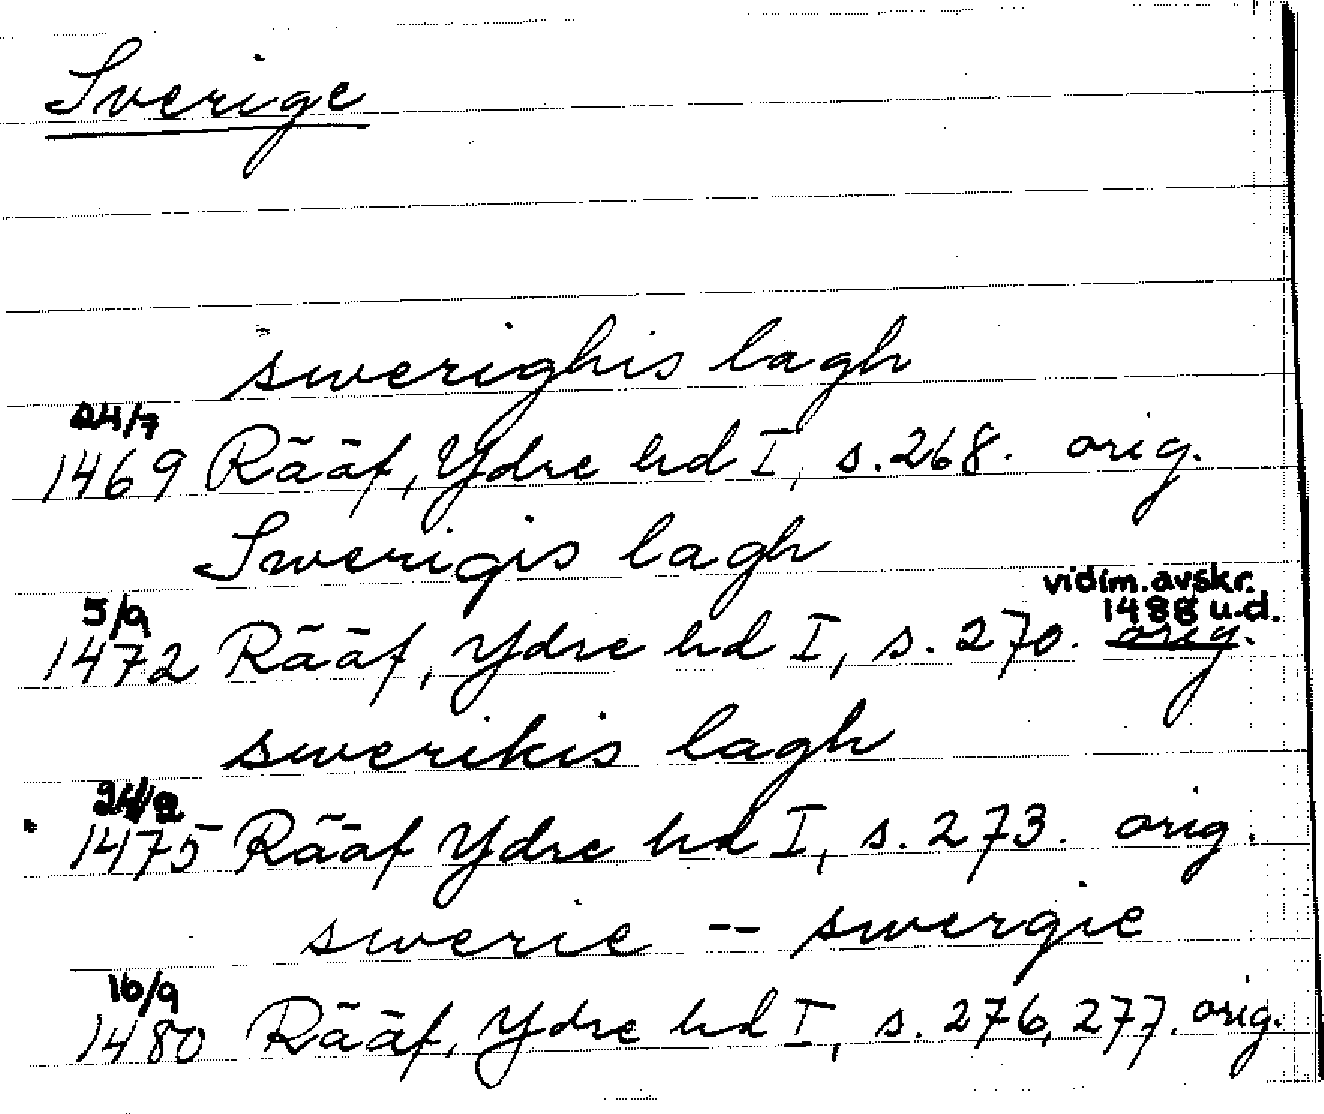 Sverige
swerighis lagh
24/7
1469 Rääf, Ydre hd I, s. 268. orig.
Swerigis lagh
vidim. avskr.
5/9 1488 u.d.
1472 Rääf, Ydre hd I, s. 270. orig.
swerikis lagh
1475 Rääf Ydre hd I, s. 273. orig.
swerie -- swergie
16/9
1480 Rääf, Ydre hd I, s. 276, 277. orig.